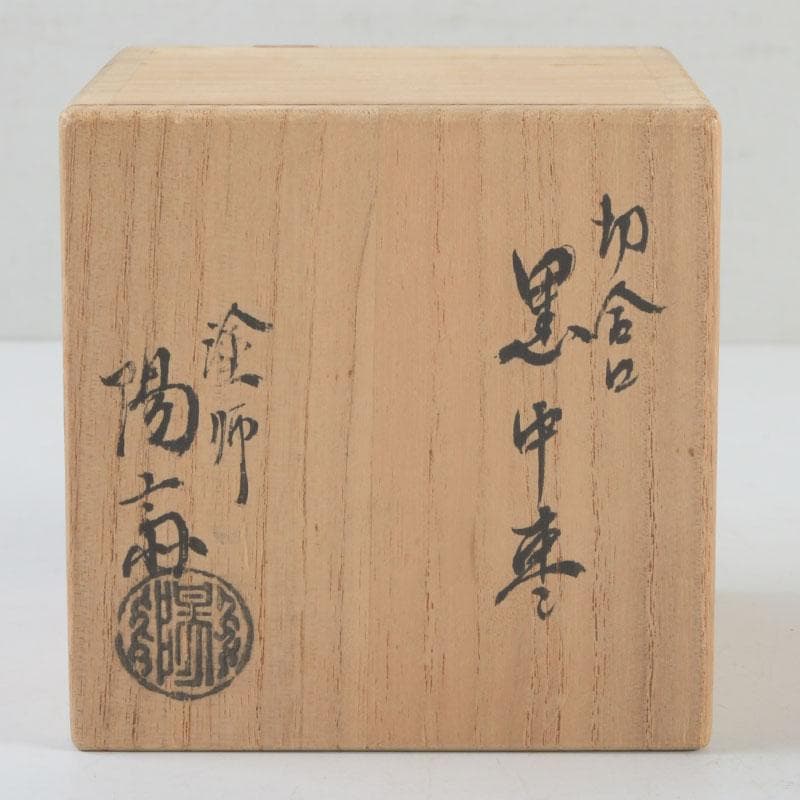 切合口
黒中棗
塗師
陽斎